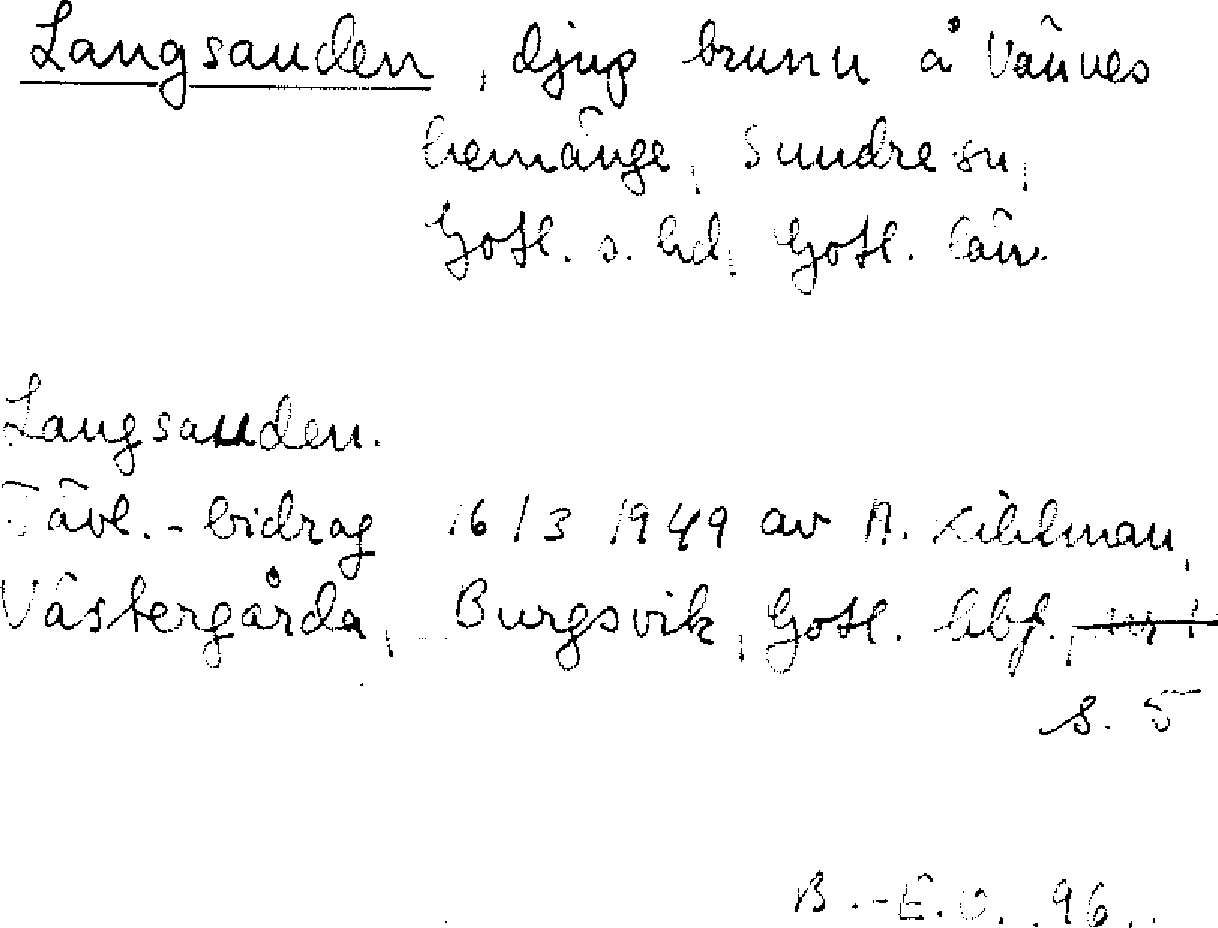 Langsanden, djup brunn å Vännes
hemänge, Sundre sn,
Gotl. s. hd, Gotl. län.
Langsanden.
Tävl.-bidrag 16/3 1949 av A. Kihlman,
Västergårda, Burgsvik, Gotl. hbf.,
s. 5
B.-E.O. 96.